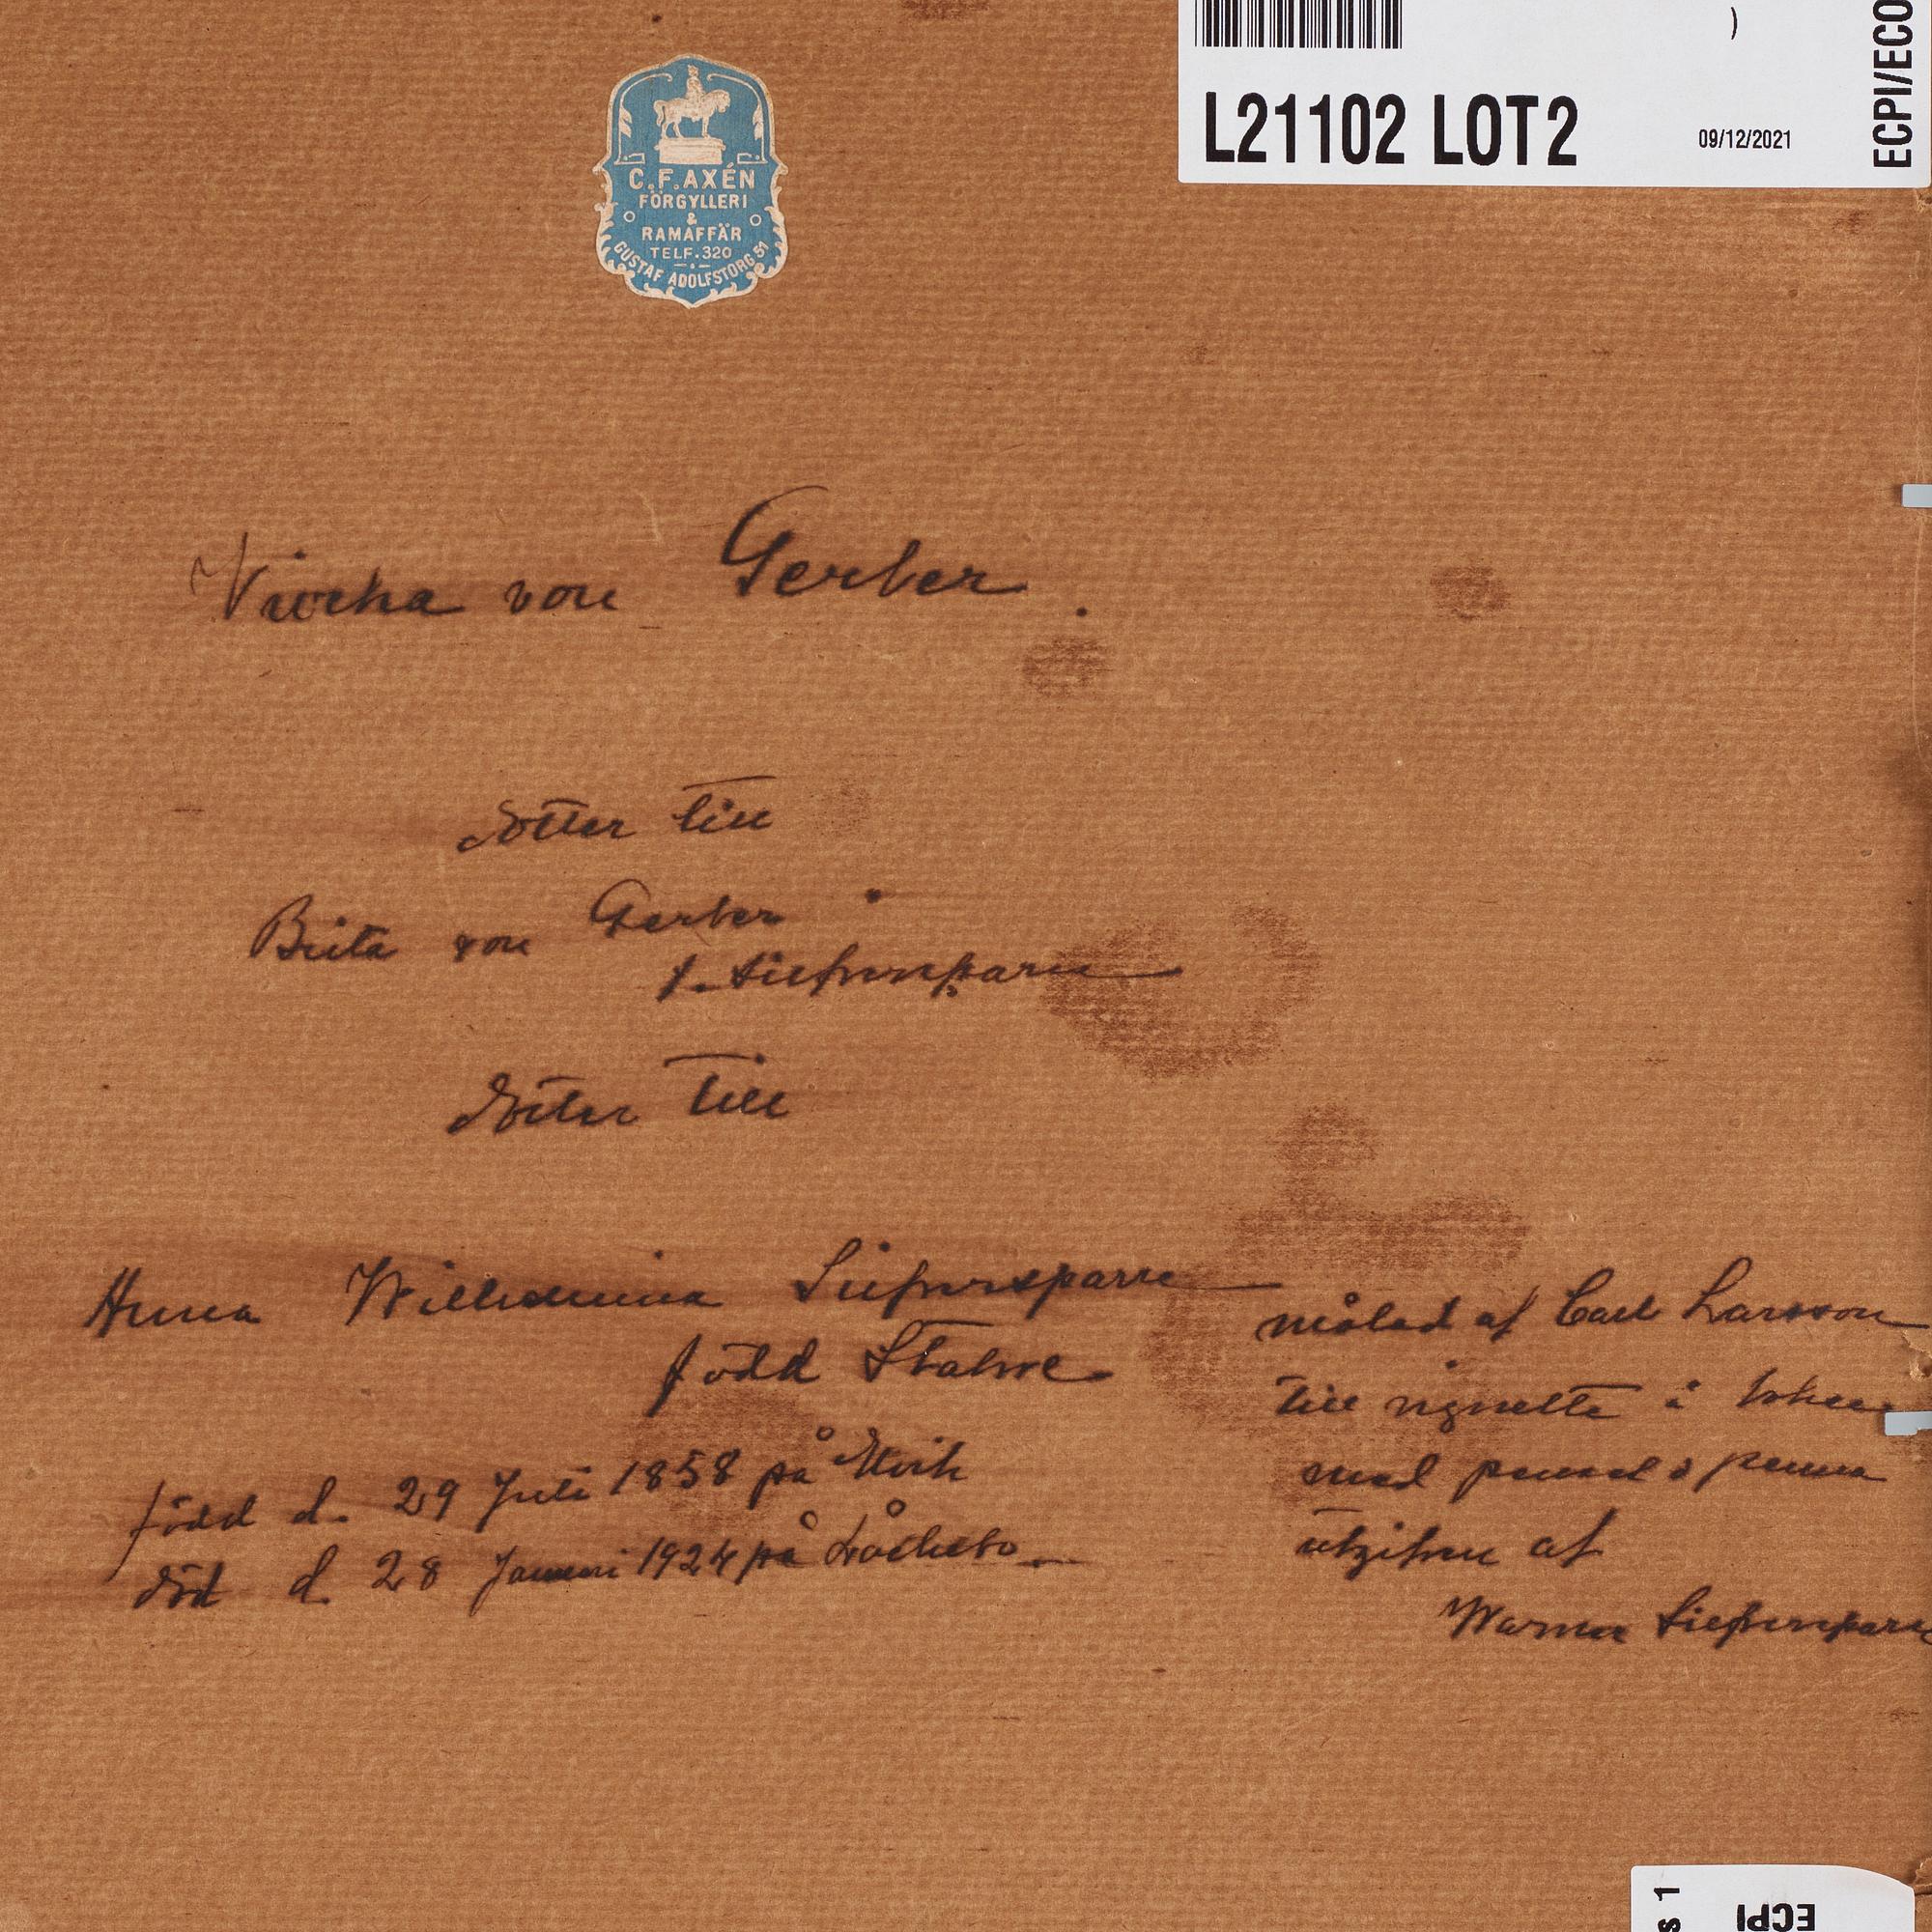 L21102 LOT2
09/12/2021
ECPI/ECO
C.F. AXÉN
FÖRGYLLERI
&
RAMAFFÄR
TELF. 320
GUSTAF ADOLFSTORG 51
Viveka von Gerber.
dotter till
Brita von Gerber
f. Liefversparre
dotter till
Anna Wilhelmina Liefversparre
född Stalwe
född d. 29 Juli 1858 på
död d. 28 Januari 1924 på
målad af Carl Larsson
till vignette i boken
med pensel o penna
utgifven af
Liefversparre
s 1
ECPI